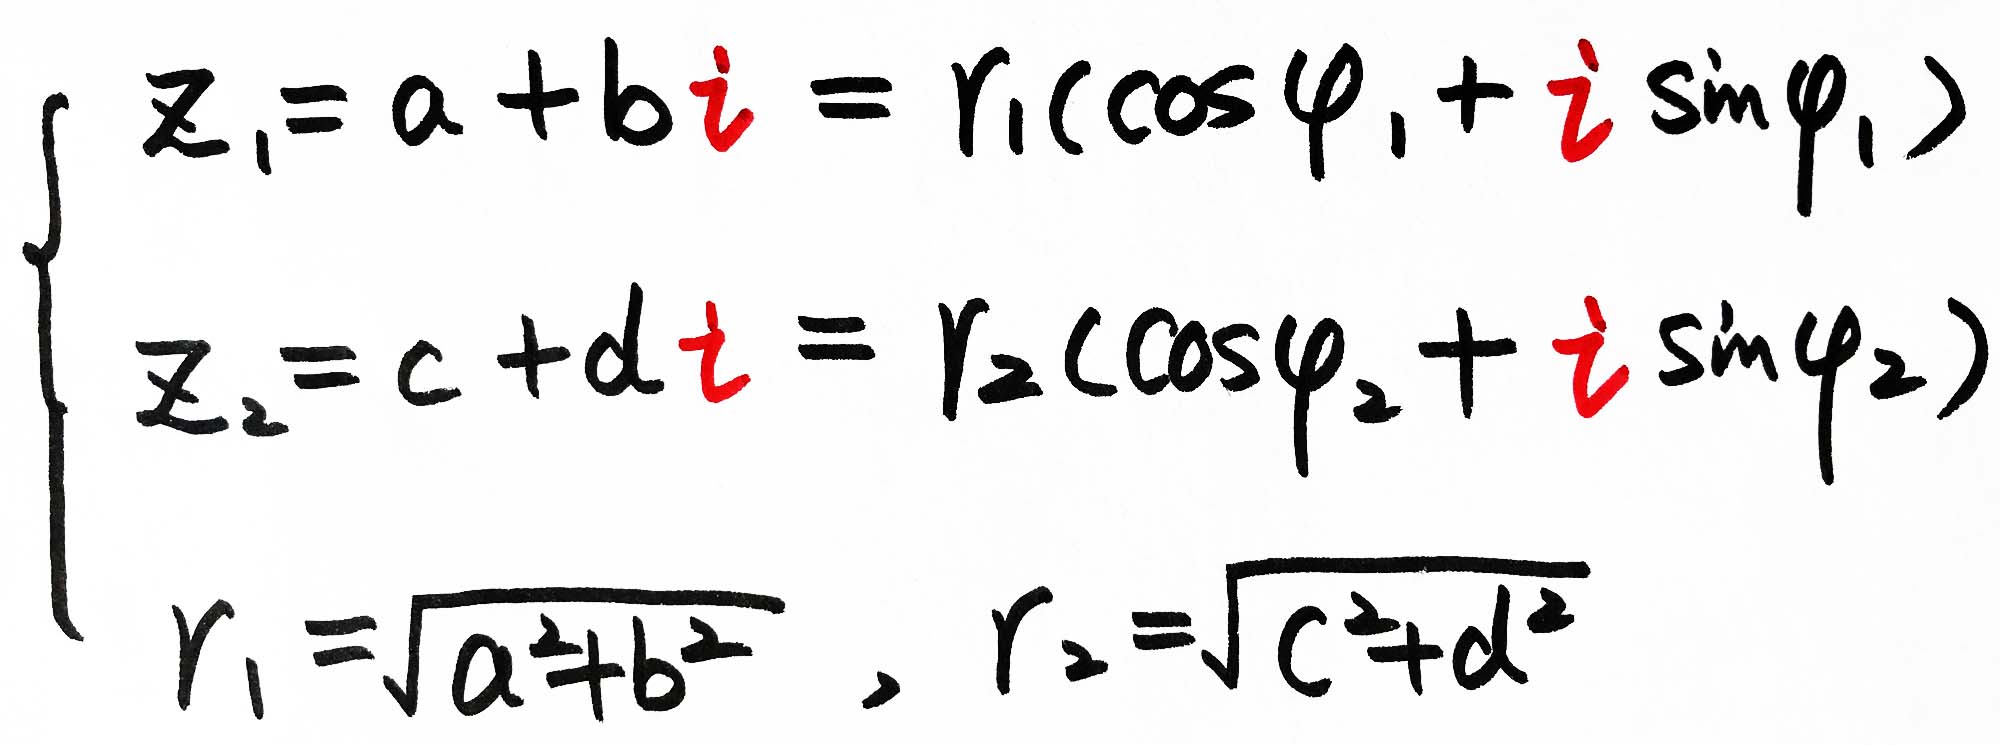 z₁ = a + bi = r₁(cosφ₁ + i sinφ₁)
z₂ = c + di = r₂(cosφ₂ + i sinφ₂)
r₁ = √(a²+b²) , r₂ = √(c²+d²)